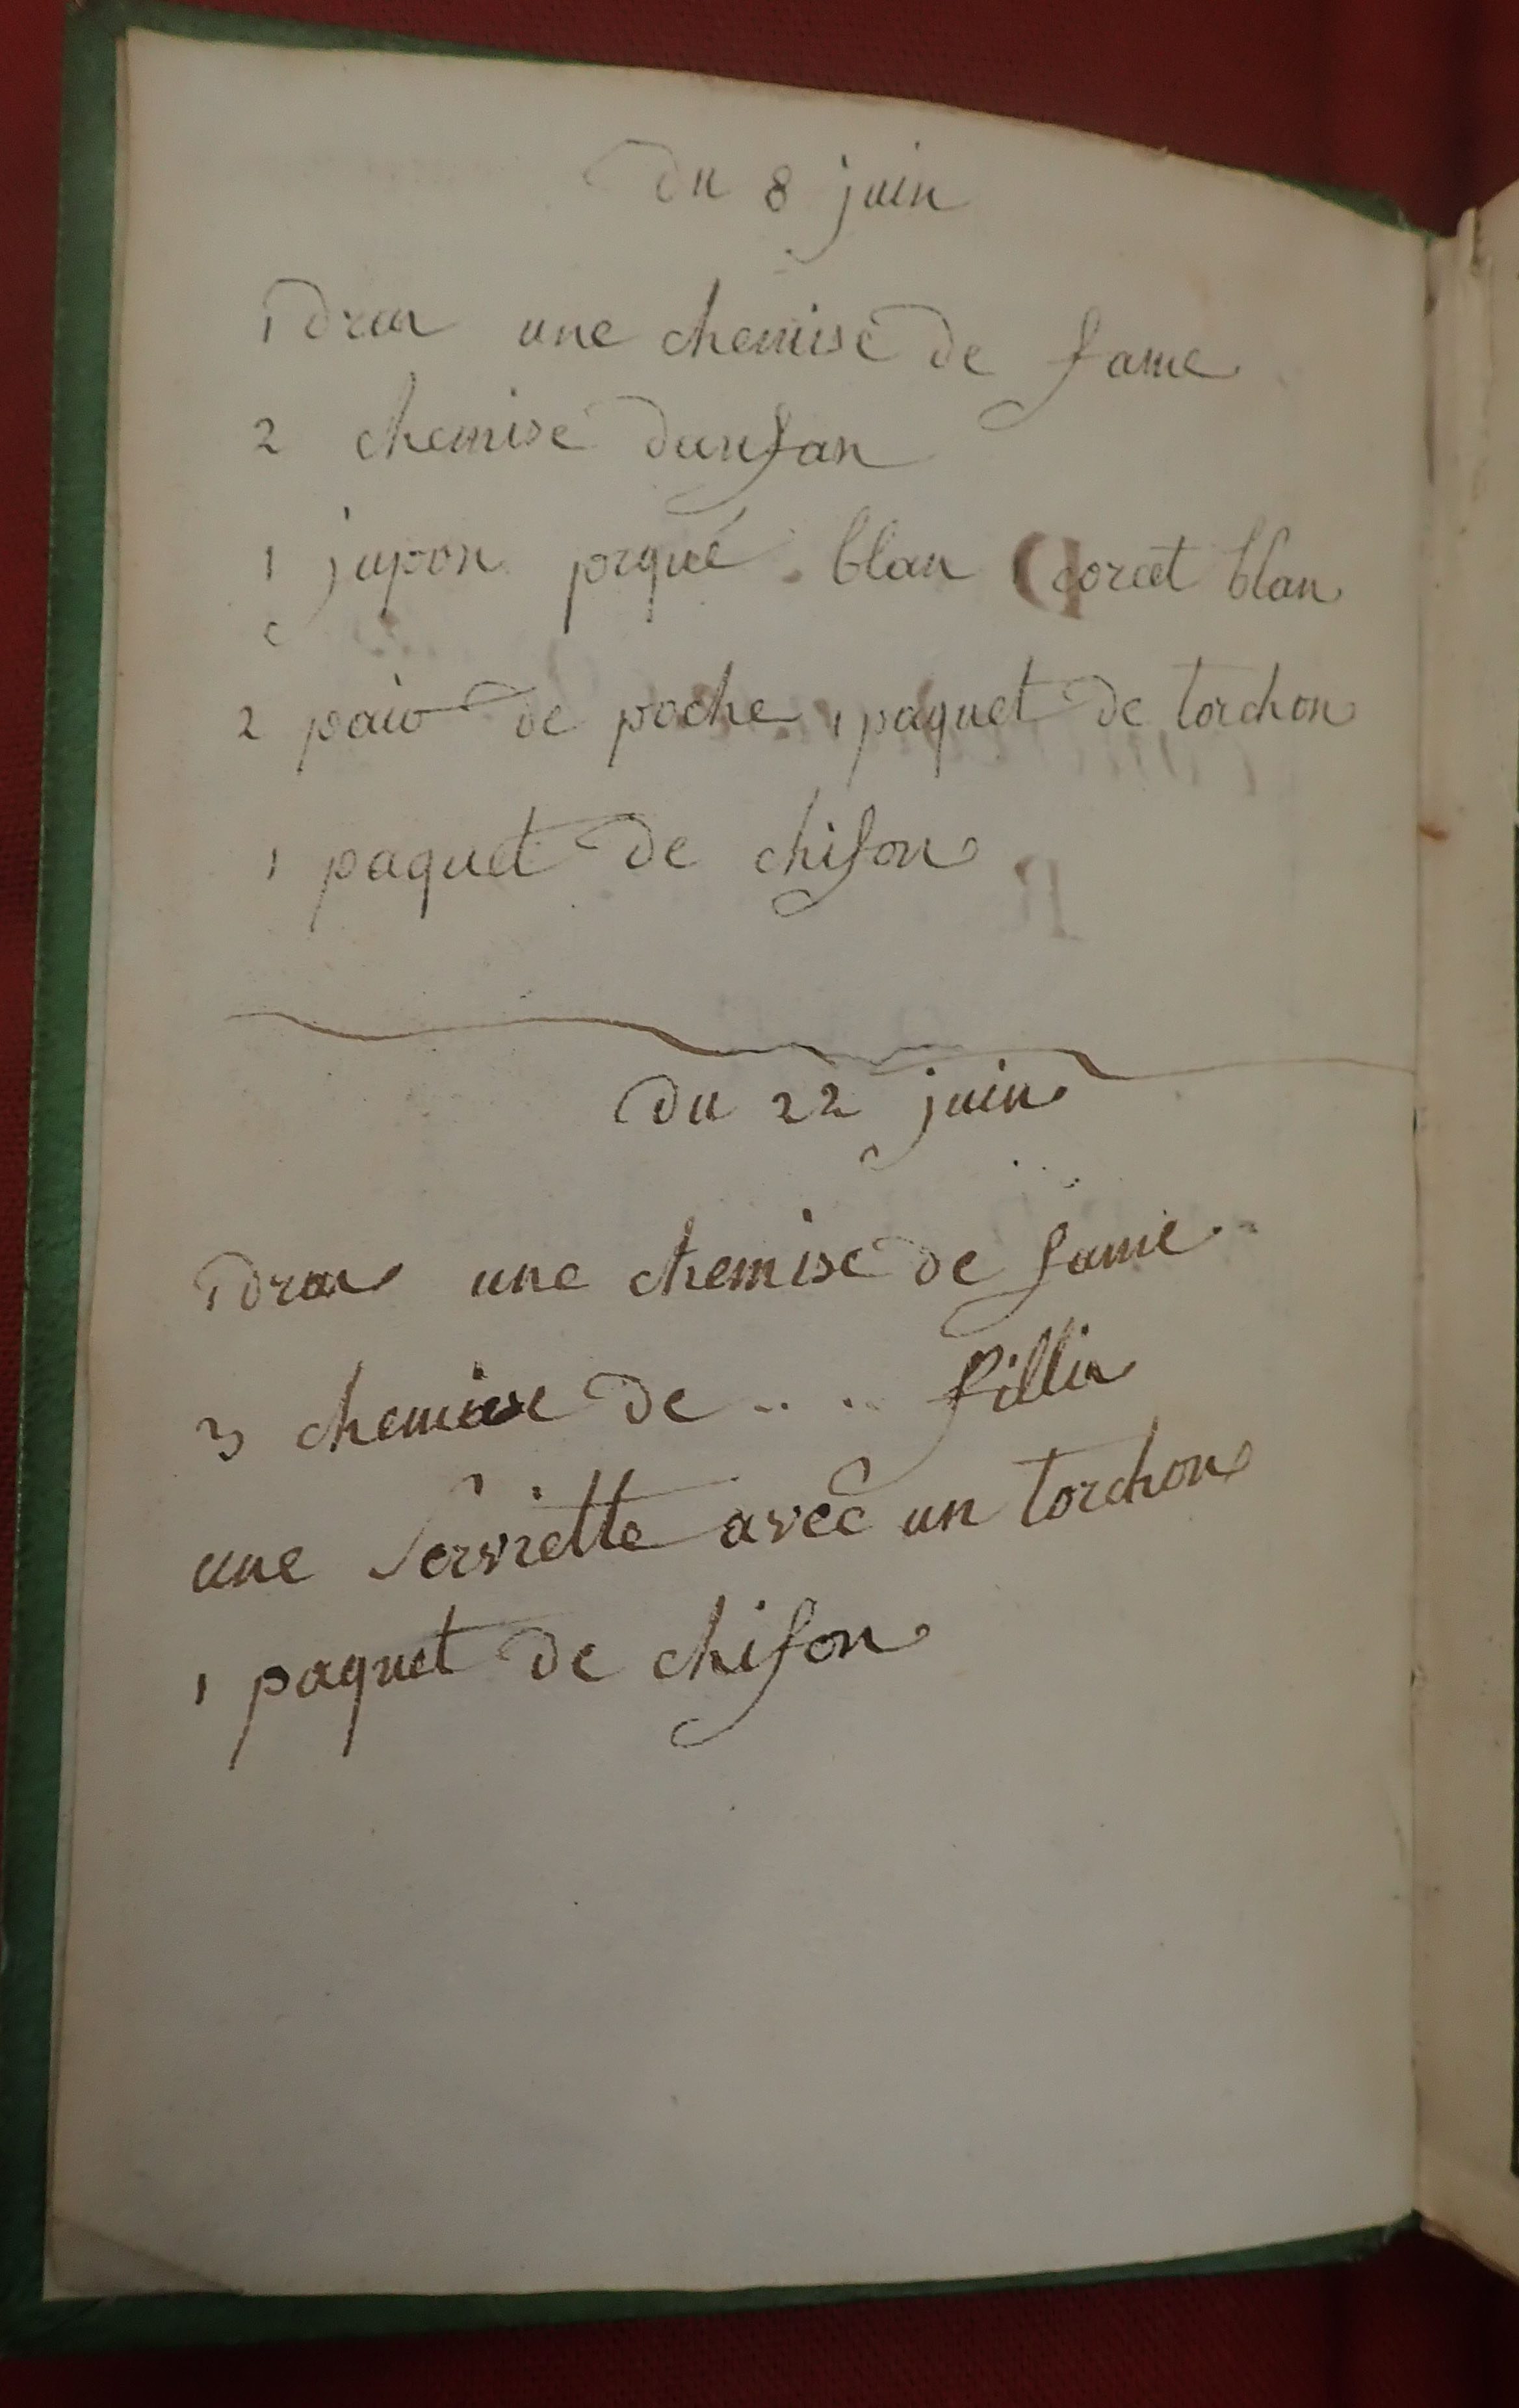 du 8 juin
1 dra une chemise de fame
2 chemise danfan
1 jupon piqué blan corcet blan
2 pair de poche 1 paquet de torchon
1 paquet de chifon
du 22 juin
1 dra une chemise de fame
3 chemise de .. .. fillia
une serviette avec un torchon
1 paquet de chifon